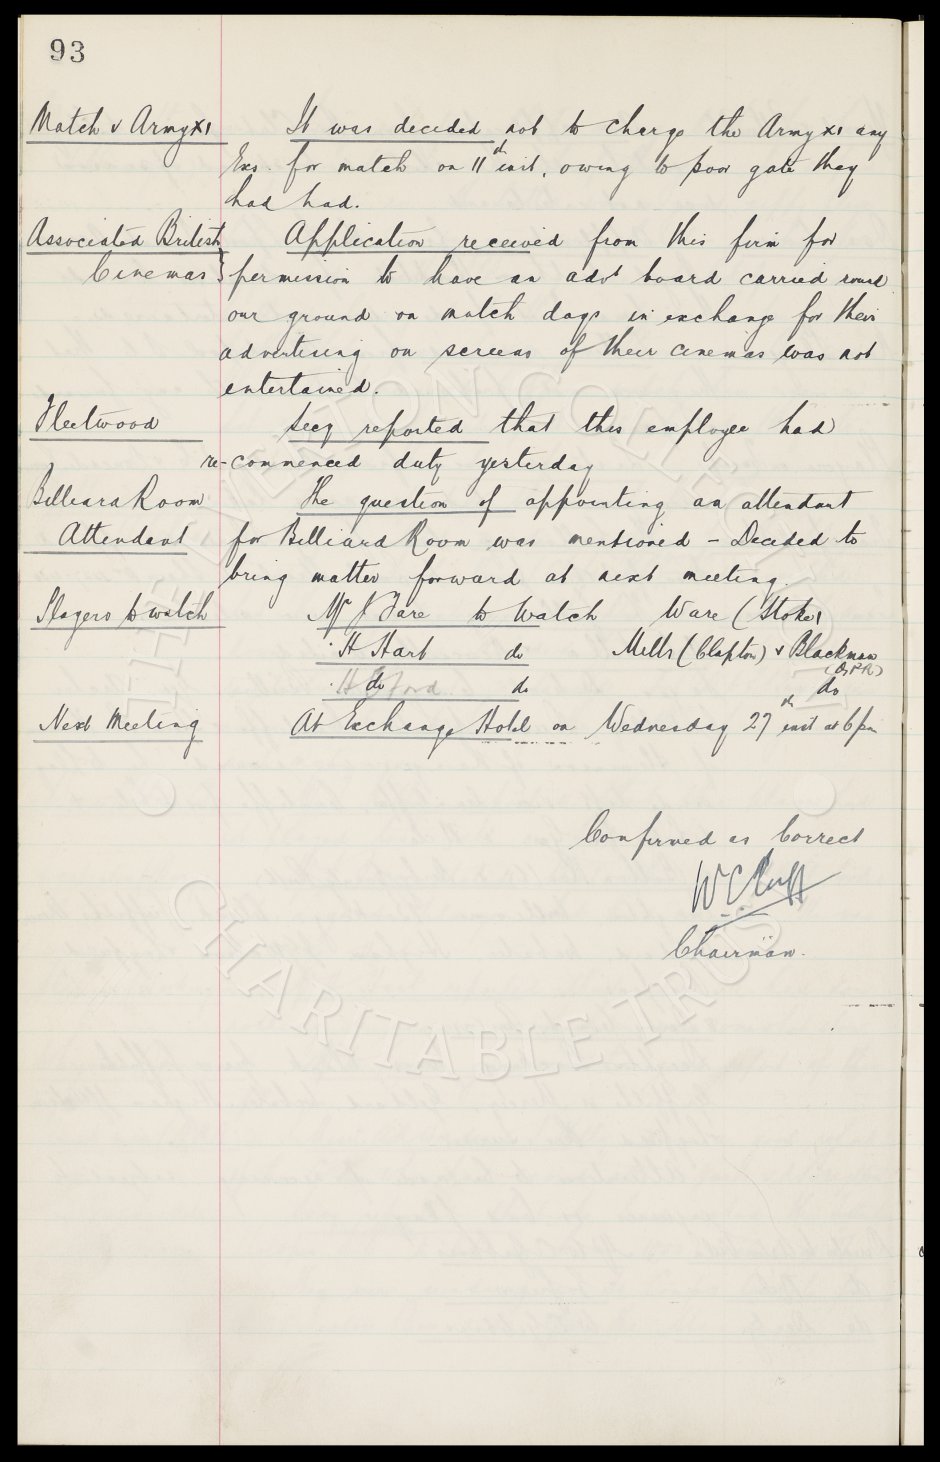 93
Match v Army XI It was decided not to charge the Army XI any
Exs. for match on 11th inst, owing to poor gate they
had had.
Associated British Application received from this firm for
Cinemas } permission to have an advt board carried round
our ground on match days in exchange for their
advertising on screens of their cinemas was not
entertained.
Fleetwood Secy reported that this employee had
re-commenced duty yesterday
Billiard Room The question of appointing an attendant
Attendant for Billiard Room was mentioned - Decided to
bring matter forward at next meeting.
Players to watch Mr J Fare to Watch Ware (Stoke)
H Hart do Mills (Clapton) & Blackman
(Q.P.R)
do do do
Next Meeting At Exchange Hotel on Wednesday 27th inst at 6 pm
Confirmed as Correct
W C Cuff
Chairman.
THE EVERTON COLLECTION
CHARITABLE TRUST